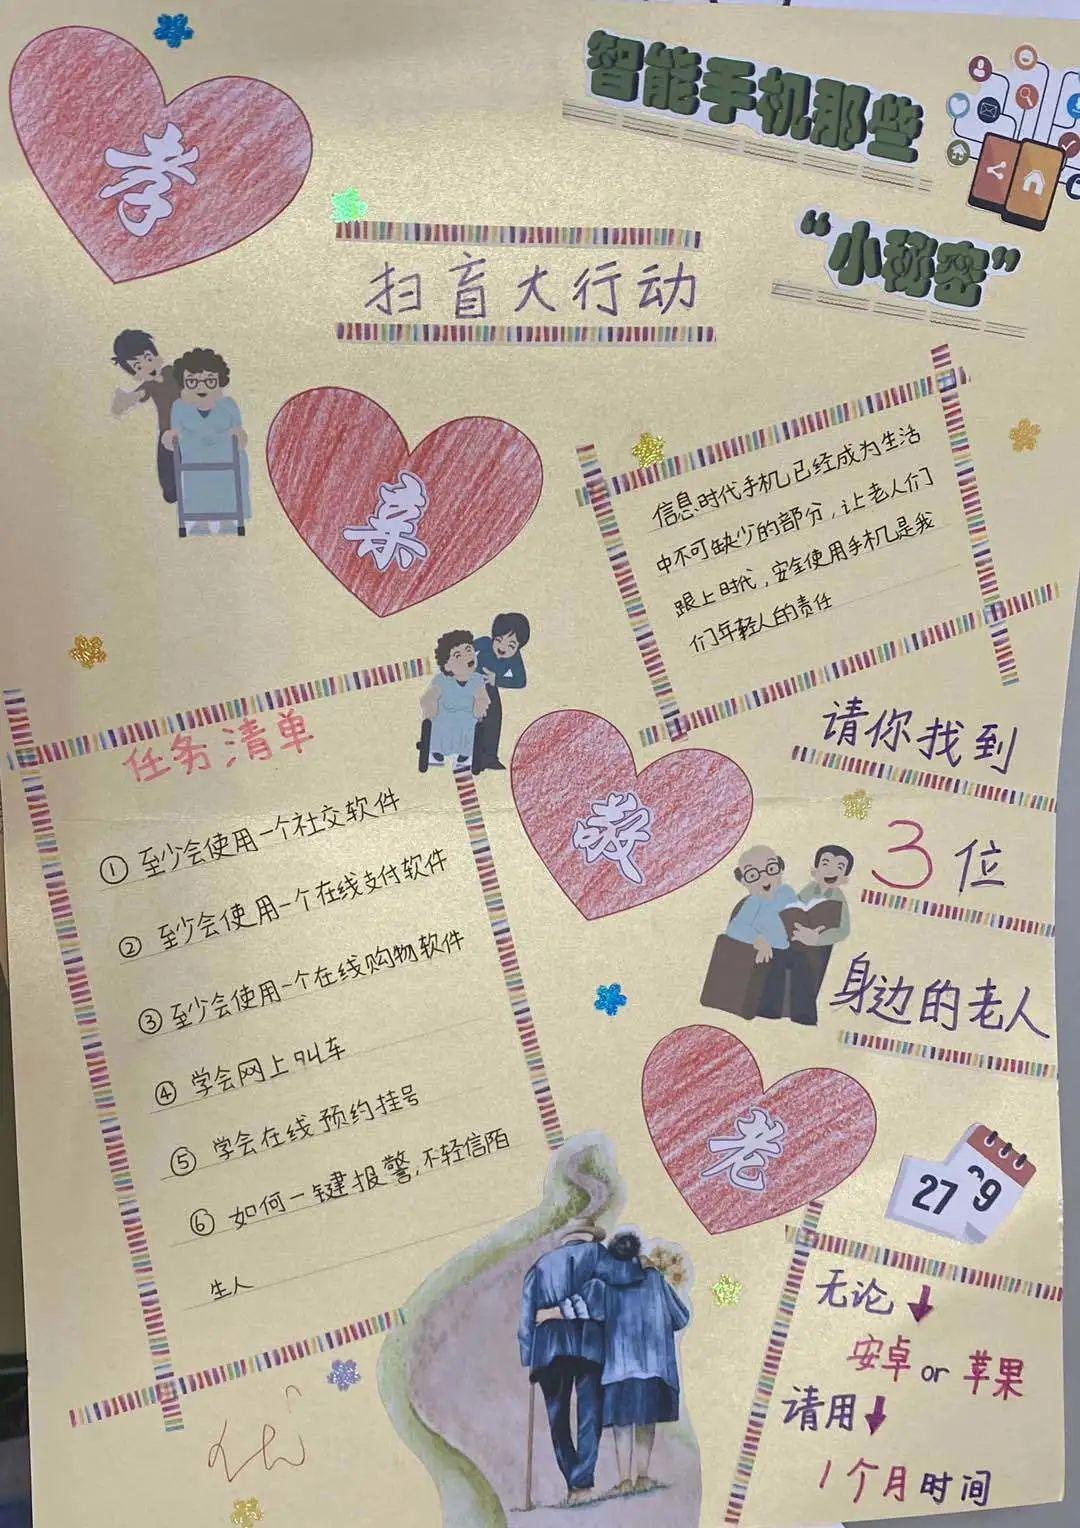 智能手机那些
“小秘密”
孝
扫盲大行动
亲
信息时代手机已经成为生活
中不可缺少的部分，让老人们
跟上时代，安全使用手机是我
们年轻人的责任
任务清单
① 至少会使用一个社交软件
② 至少会使用一个在线支付软件
③ 至少会使用一个在线购物软件
④ 学会网上叫车
⑤ 学会在线预约挂号
⑥ 如何一键报警，不轻信陌
生人
请你找到
3位
身边的老人
敬
老
27
无论
安卓 or 苹果
请用
1个月时间
优